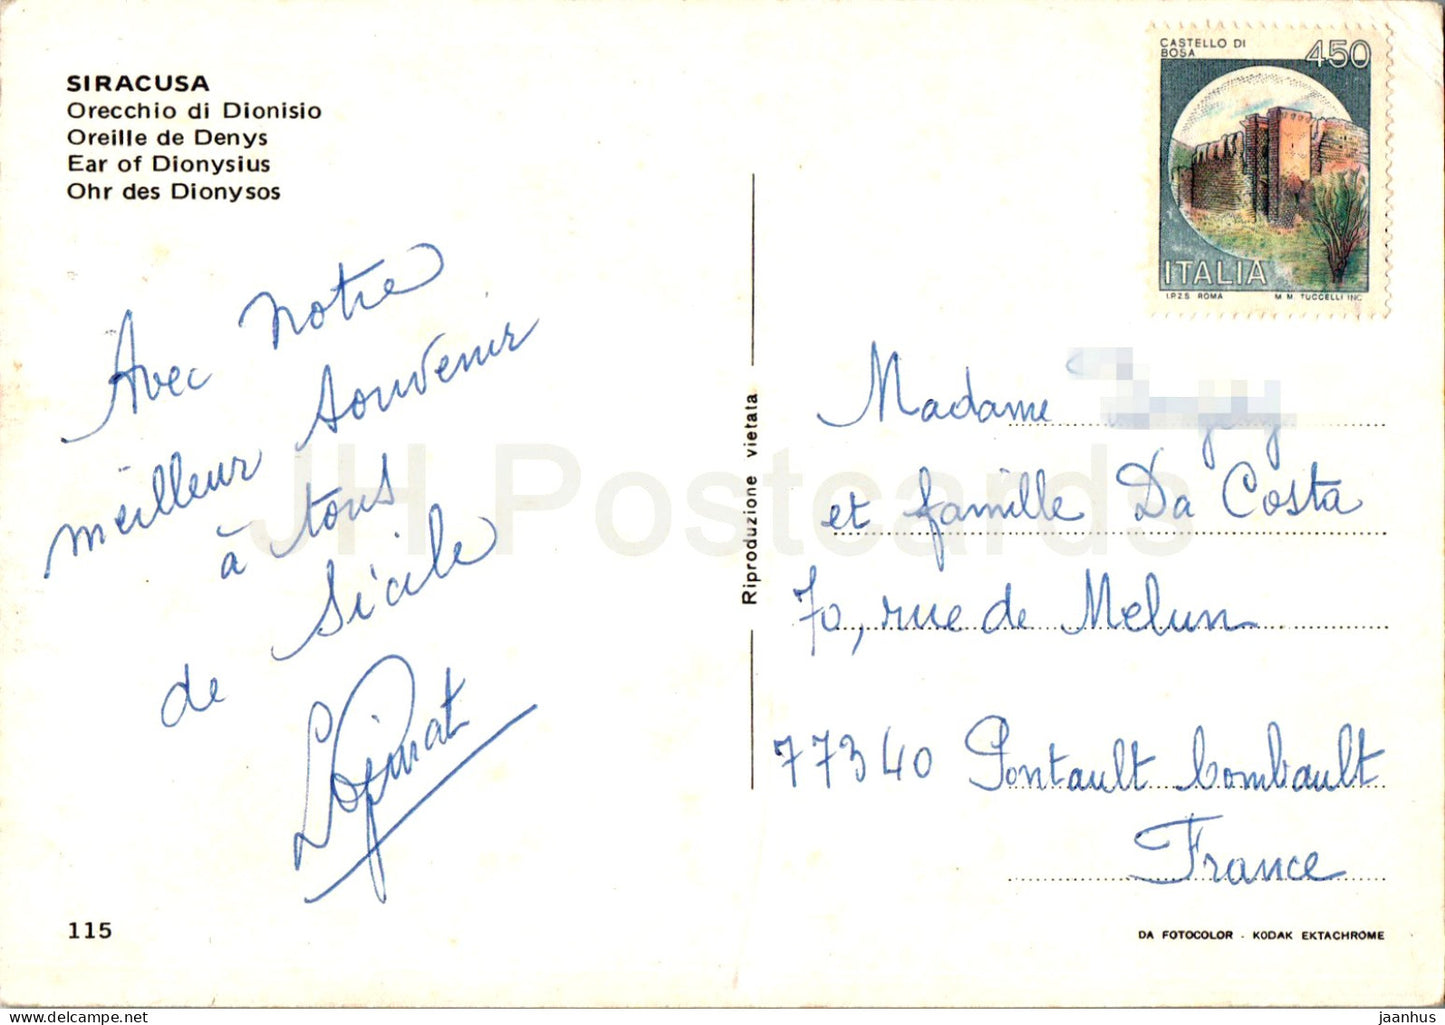 SIRACUSA
Orecchio di Dionisio
Oreille de Denys
Ear of Dionysius
Ohr des Dionysos
CASTELLO DI
BOSA
450
ITALIA
I.P.Z.S. ROMA M. M. TUCCELLI INC.
Avec notre
meilleur souvenir
à tous
de Sicile
Riproduzione vietata
Madame
et famille Da Costa
70, rue de Melun
77340 Pontault Combault
France
115
DA FOTOCOLOR - KODAK EKTACHROME
JH Postcards
jaanhus